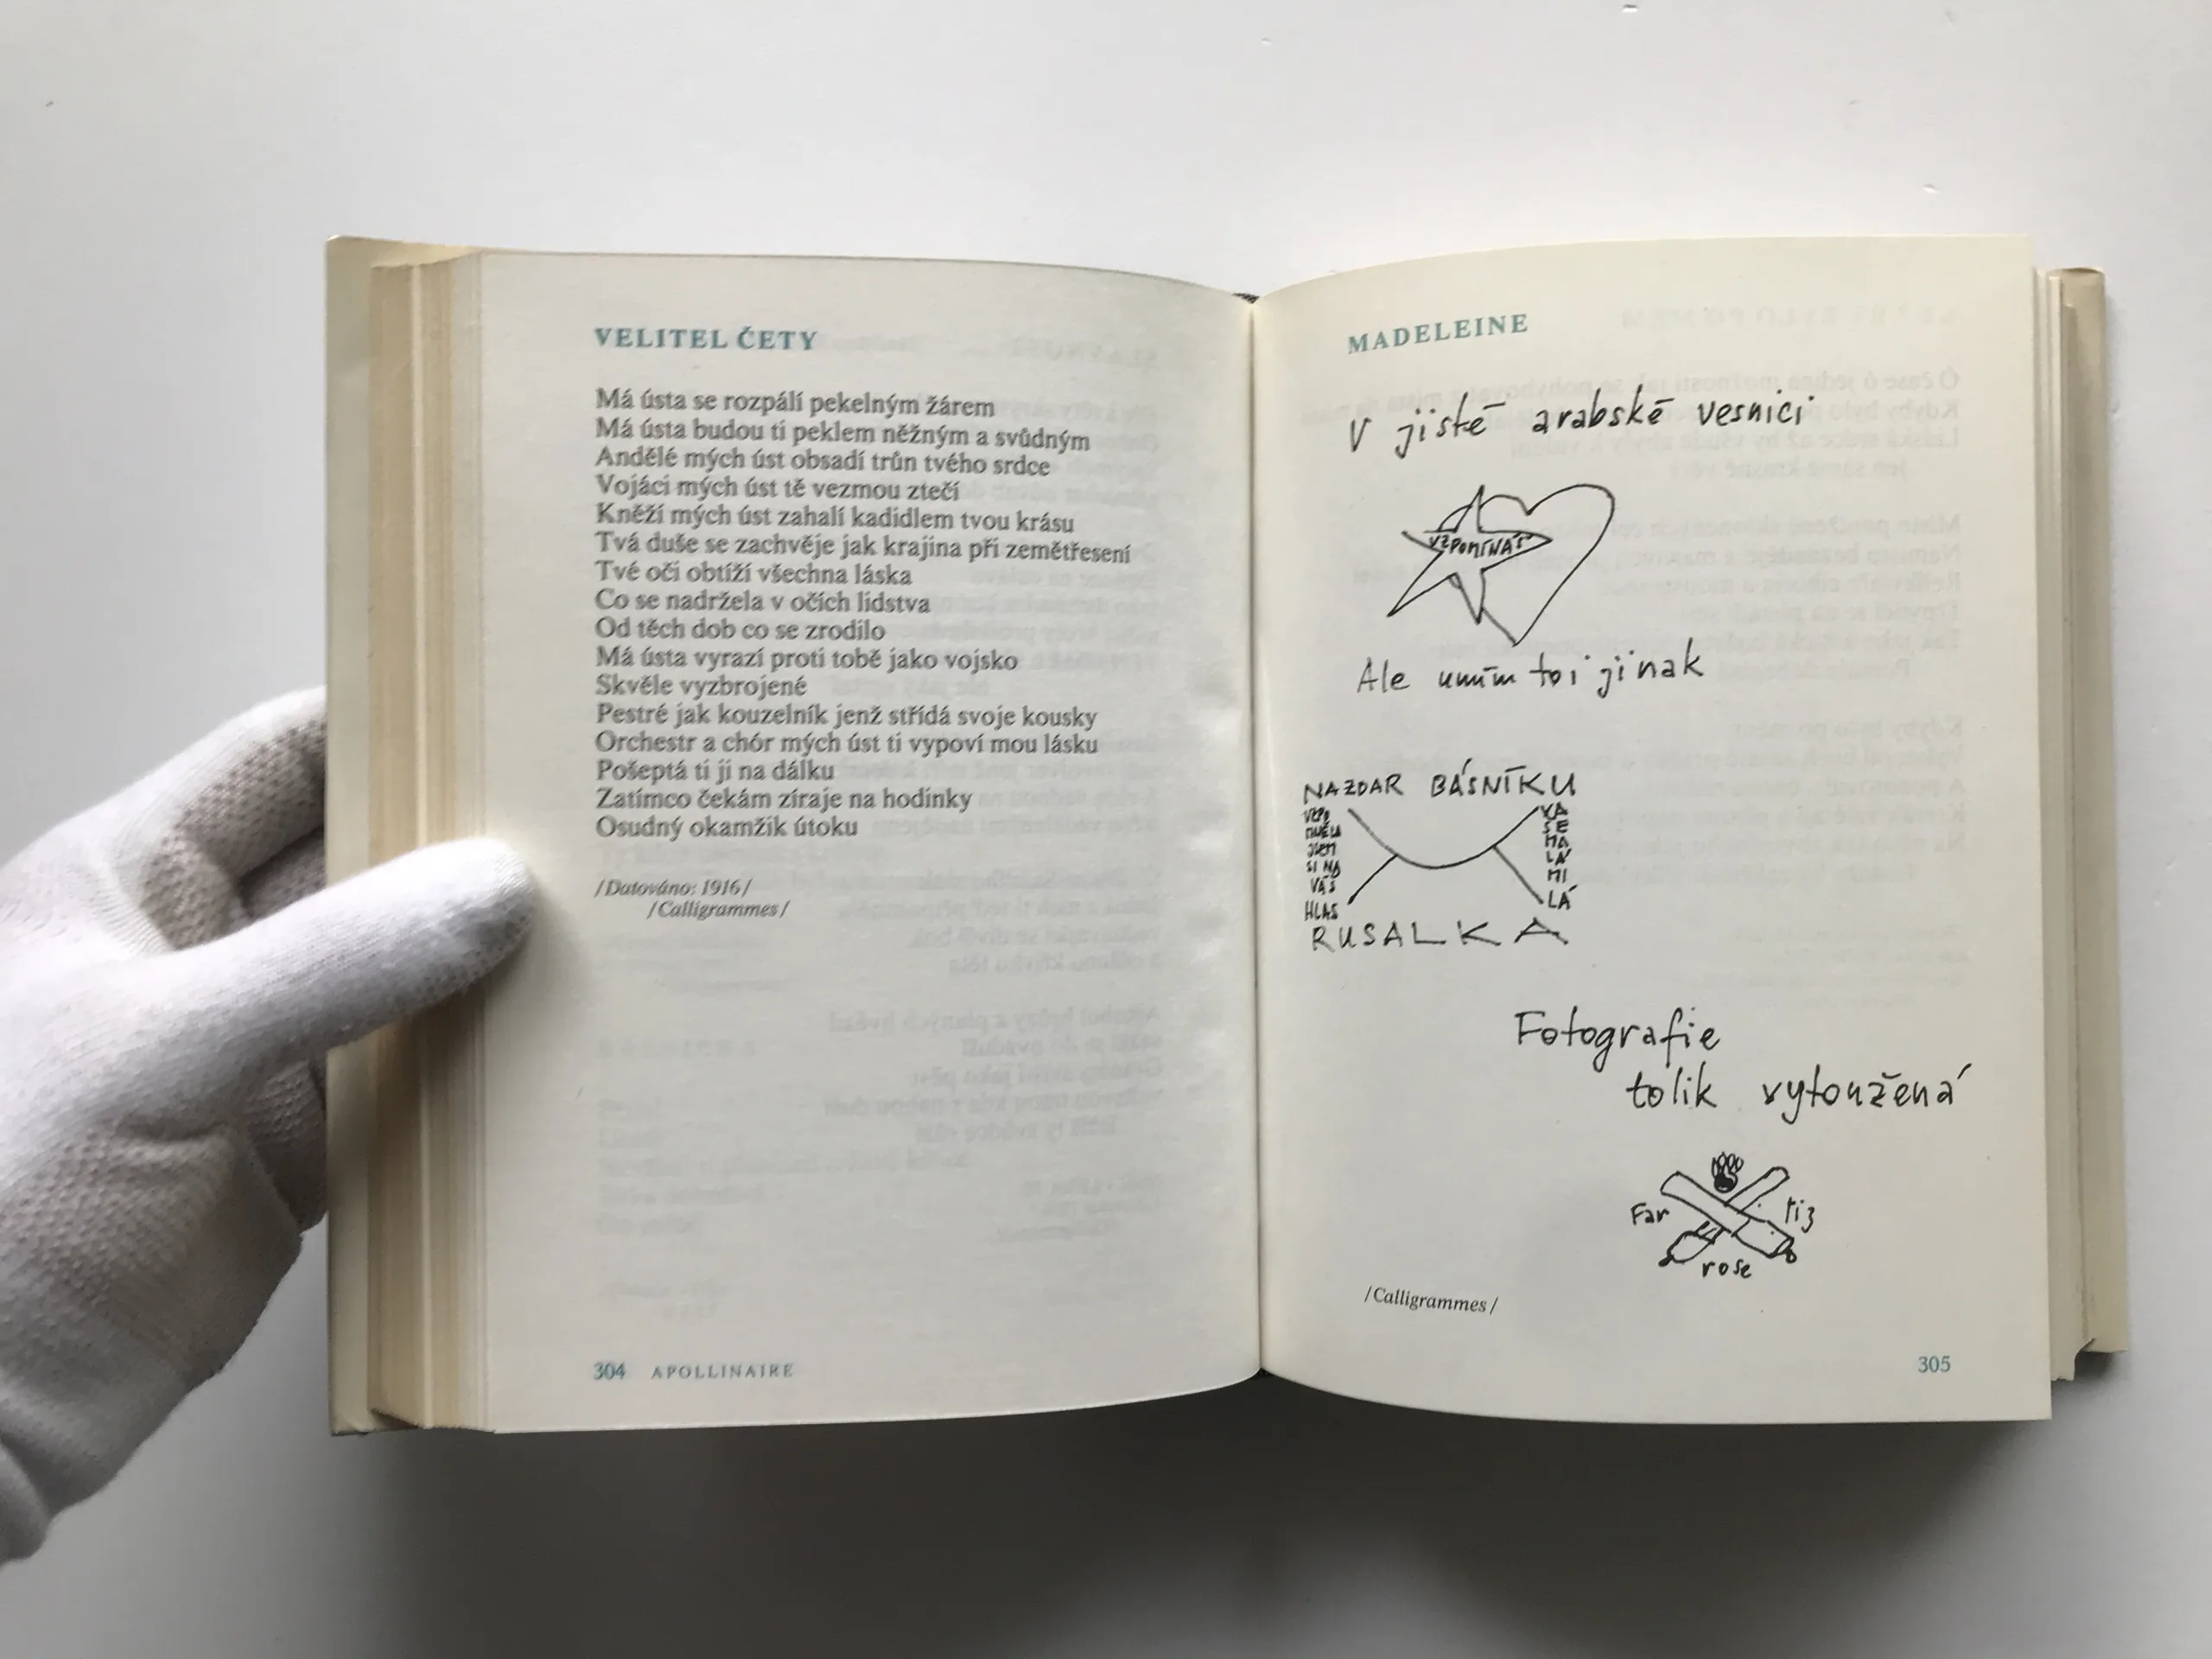 VELITEL ČETY
Má ústa se rozpálí pekelným žárem
Má ústa budou ti peklem něžným a svůdným
Andělé mých úst obsadí trůn tvého srdce
Vojáci mých úst tě vezmou ztečí
Kněží mých úst zahalí kadidlem tvou krásu
Tvá duše se zachvěje jak krajina při zemětřesení
Tvé oči obtíží všechna láska
Co se nadržela v očích lidstva
Od těch dob co se zrodilo
Má ústa vyrazí proti tobě jako vojsko
Skvěle vyzbrojené
Pestré jak kouzelník jenž střídá svoje kousky
Orchestr a chór mých úst ti vypoví mou lásku
Pošeptá ti ji na dálku
Zatímco čekám zíraje na hodinky
Osudný okamžik útoku
/Datováno: 1916/
/Calligrammes/
304 APOLLINAIRE
MADELEINE
V jisté arabské vesnici
VZPOMÍNÁŠ
Ale umím to i jinak
NAZDAR BÁSNÍKU
VZPO
MNĚLA
JSEM
SI NA
VÁŠ
HLAS
VA
ŠE
MA
LÁ
MI
LÁ
RUSALKA
Fotografie
tolik vytoužená
Far
tiz
rose
/Calligrammes/
305